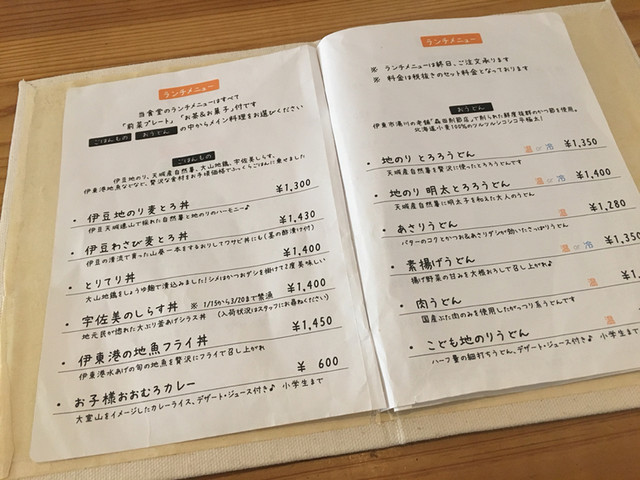 ランチメニュー
当食堂のランチメニューはすべて
「前菜プレート」「お茶&お菓子」付です
ごはんもの おうどん の中からメイン料理をお選びください
ごはんもの
伊豆地のり、天城産自然薯、大山地鶏、宇佐美しらす、
伊東港地魚などなど、贅沢な食材をお手頃価格でふっくらごはんに乗せました
・伊豆地のり麦とろ丼 ¥1,300
伊豆天城連山で採れた自然薯と地のりのハーモニー♪
・伊豆わさび麦とろ丼 ¥1,430
伊豆の清流で育った山葵一本をするおろしてワサビ丼にも(茎の酢漬け付)
・とりてり丼 ¥1,400
大山地鶏をしょうゆ麹で漬込みました!シメはかつおダシを掛けて2度美味しい
・宇佐美のしらす丼 ※1/15から3/20まで禁漁 ¥1,400
地元民が惚れた大ぶり釜あげシラス丼 (入荷状況はスタッフにお尋ねください)
・伊東港の地魚フライ丼 ¥1,450
伊東港水あげの旬の地魚を贅沢にフライで召し上がれ
・お子様おおむろカレー ¥ 600
大室山をイメージしたカレーライス、デザート・ジュース付き♪ 小学生まで
ランチメニュー
※ ランチメニューは終日、ご注文承ります
※ 料金は税抜きのセット料金となっております
おうどん
伊東市湯川の老舗「森田削節店」で削られた鮮度抜群のかつ節を使用。
北海道小麦100%のツルツルシコシコ平極太!
・地のり とろろうどん 温 or 冷 ¥1,350
天城産自然薯を贅沢に使ったとろろうどんです
・地のり 明太とろろうどん 温 or 冷 ¥1,400
天城産自然薯に明太子を和えた大人のうどん
・あさりうどん 温 ¥1,280
バターのコクとかつお&あさりダシが効いたさっぱりうどん
・素揚げうどん 温 or 冷 ¥1,350
揚げ野菜の甘みを大根おろしで召し上がれ♪
・肉うどん 温
国産ぶた肉のみを使用したがっつり系うどんです
・こども地のりうどん 温
ハーフ量の細打ちうどん、デザート・ジュース付き♪ 小学生まで